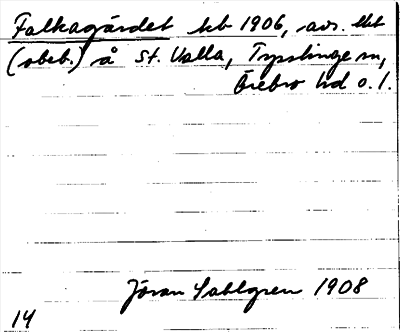 Falkagärdet kb 1906, avs. lht
(obeb.) å St. Valla, Tysslinge sn,
Örebro hd o. l.
Jöran Sahlgren 1908
14